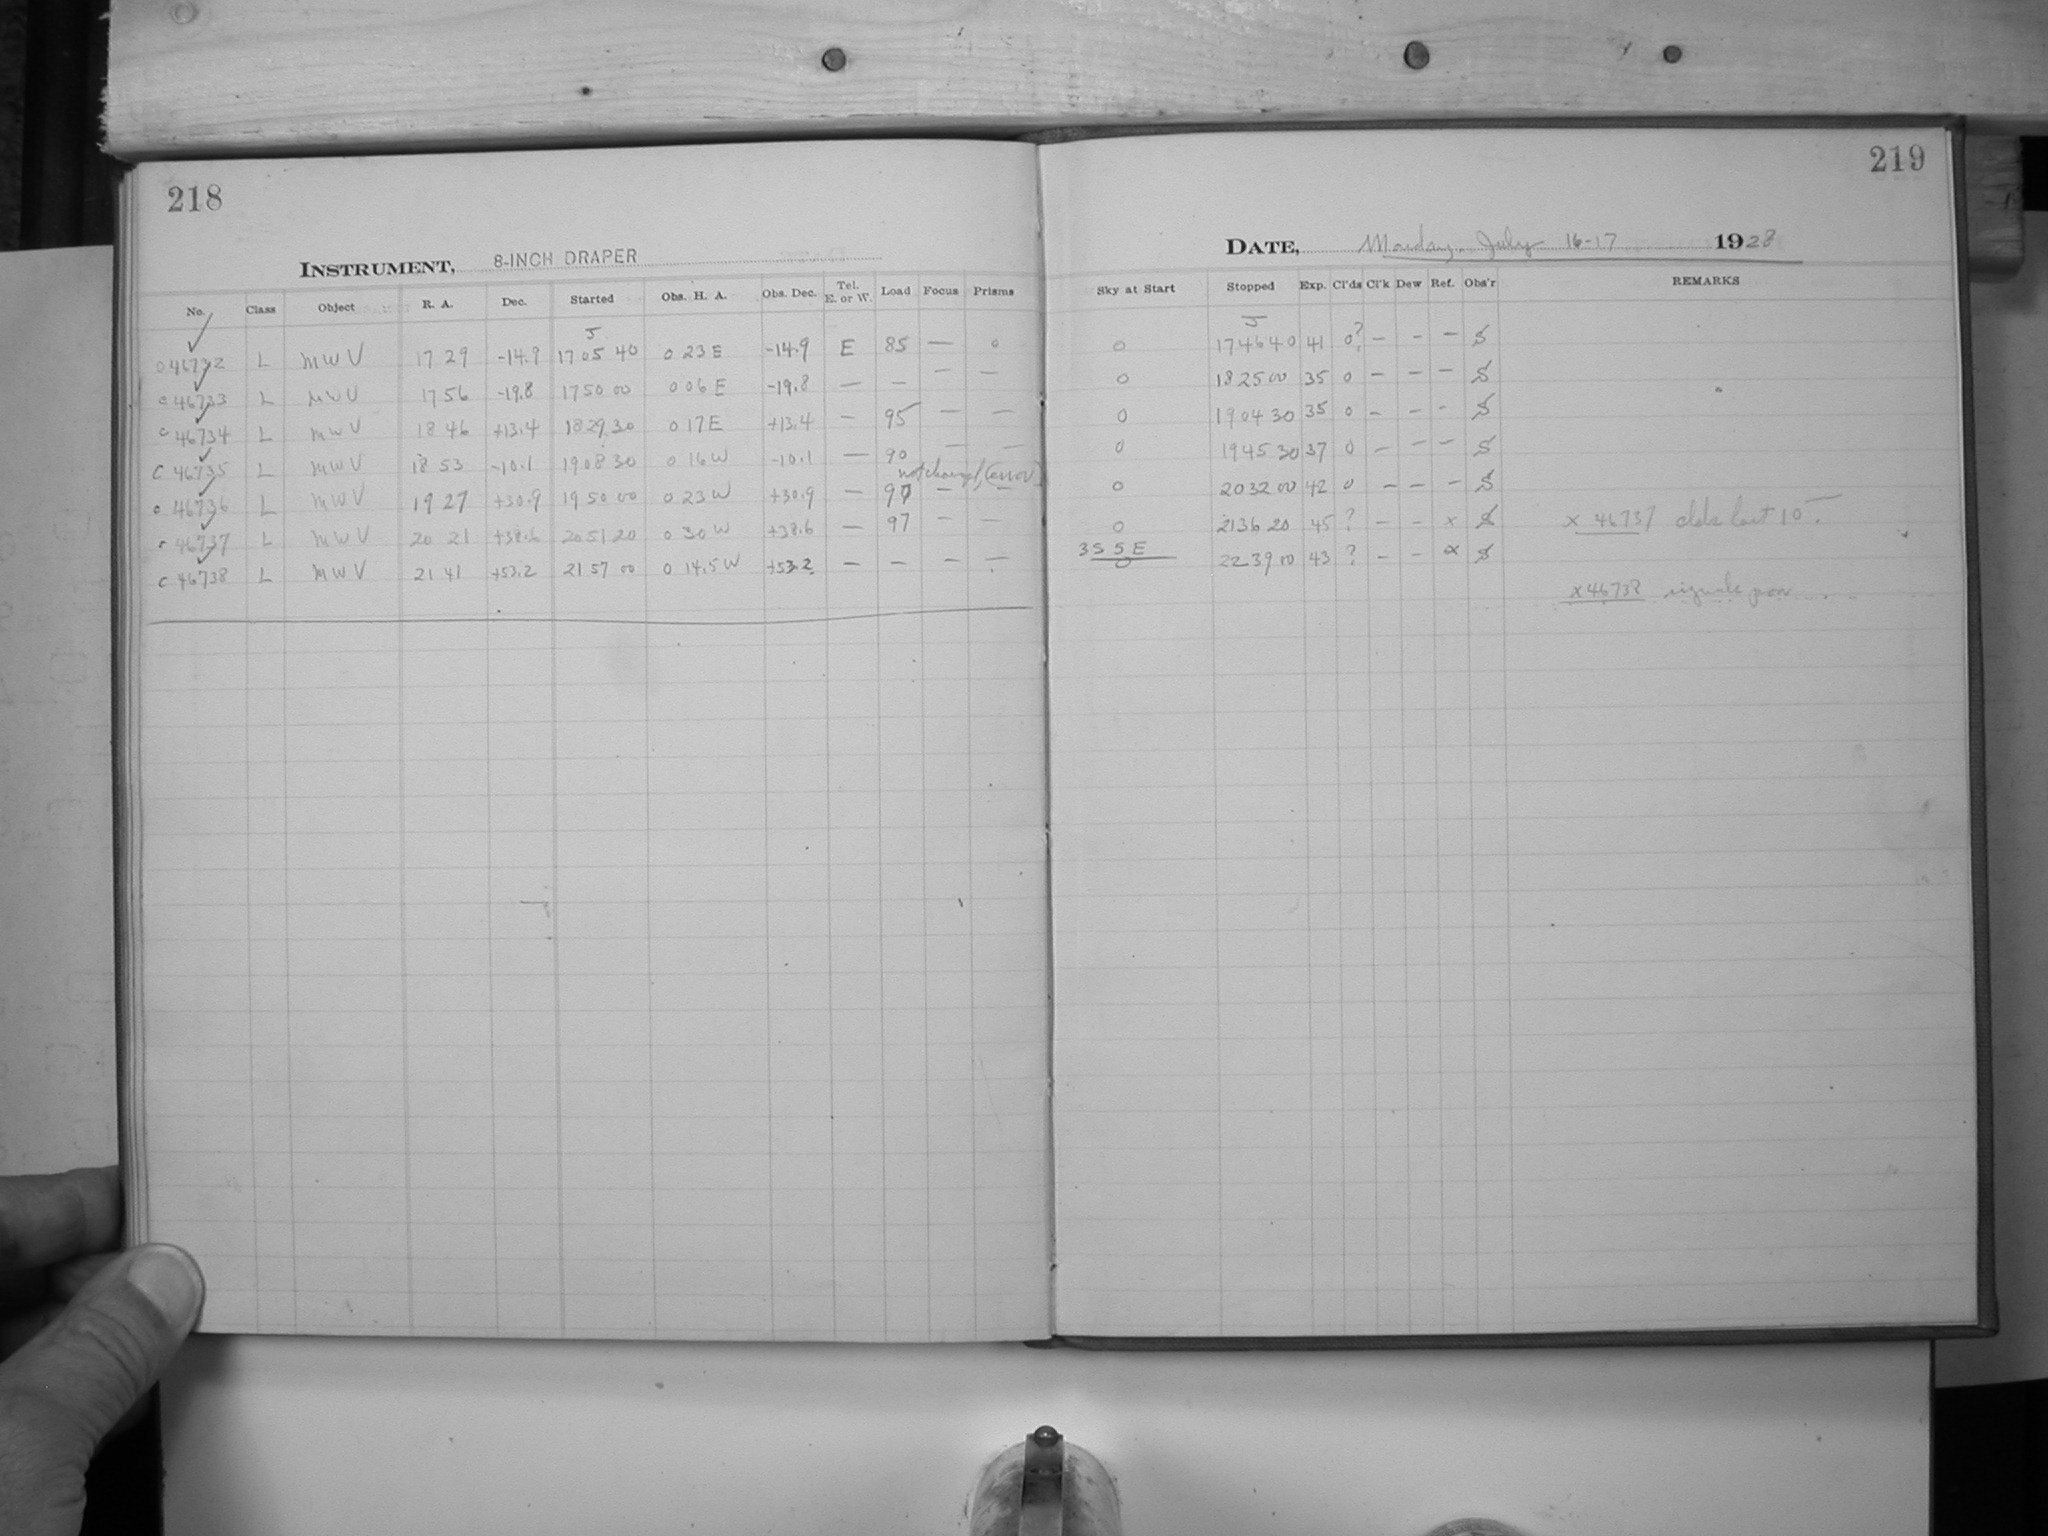 218
INSTRUMENT, 8-INCH DRAPER
No. Class Object R. A. Dec. Started Obs. H. A. Obs. Dec. Tel. E. or W. Load Focus Prisms
J
46732 L MWV 17 29 -14.9 17 05 40 0 23 E -14.9 E 85 — 0
46733 L MWV 17 56 -19.8 17 50 00 0 06 E -19.8 — — — —
46734 L MWV 18 46 +13.4 18 29 30 0 17 E +13.4 — 95 — —
C 46735 L MWV 18 53 -10.1 19 08 30 0 16 W -10.1 — 90 — —
(error)
46736 L MWV 19 27 +30.9 19 50 00 0 23 W +30.9 — — —
46737 L MWV 20 21 +38.6 20 51 20 0 30 W +38.6 — 97 — —
C 46738 L MWV 21 41 +53.2 21 57 00 0 14.5 W +53.2 — — — —
219
DATE, Monday July 16-17 1928
Sky at Start Stopped Exp. Cl'ds Cl'k Dew Ref. Obs'r REMARKS
J
0 17 46 40 41 0? — — — S
0 18 25 00 35 0 — — — S
0 19 04 30 35 0 — — — S
0 19 45 30 37 0 — — — S
0 20 32 00 42 0 — — — S
0 21 36 20 45 ? — — x S x 46737 last 10
3 5 5 E
0 22 39 00 43 ? — — x S
x 46738